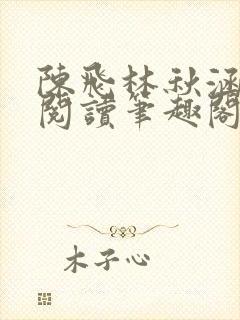 陳飛林秋涵
閱讀筆趣閣
木子心